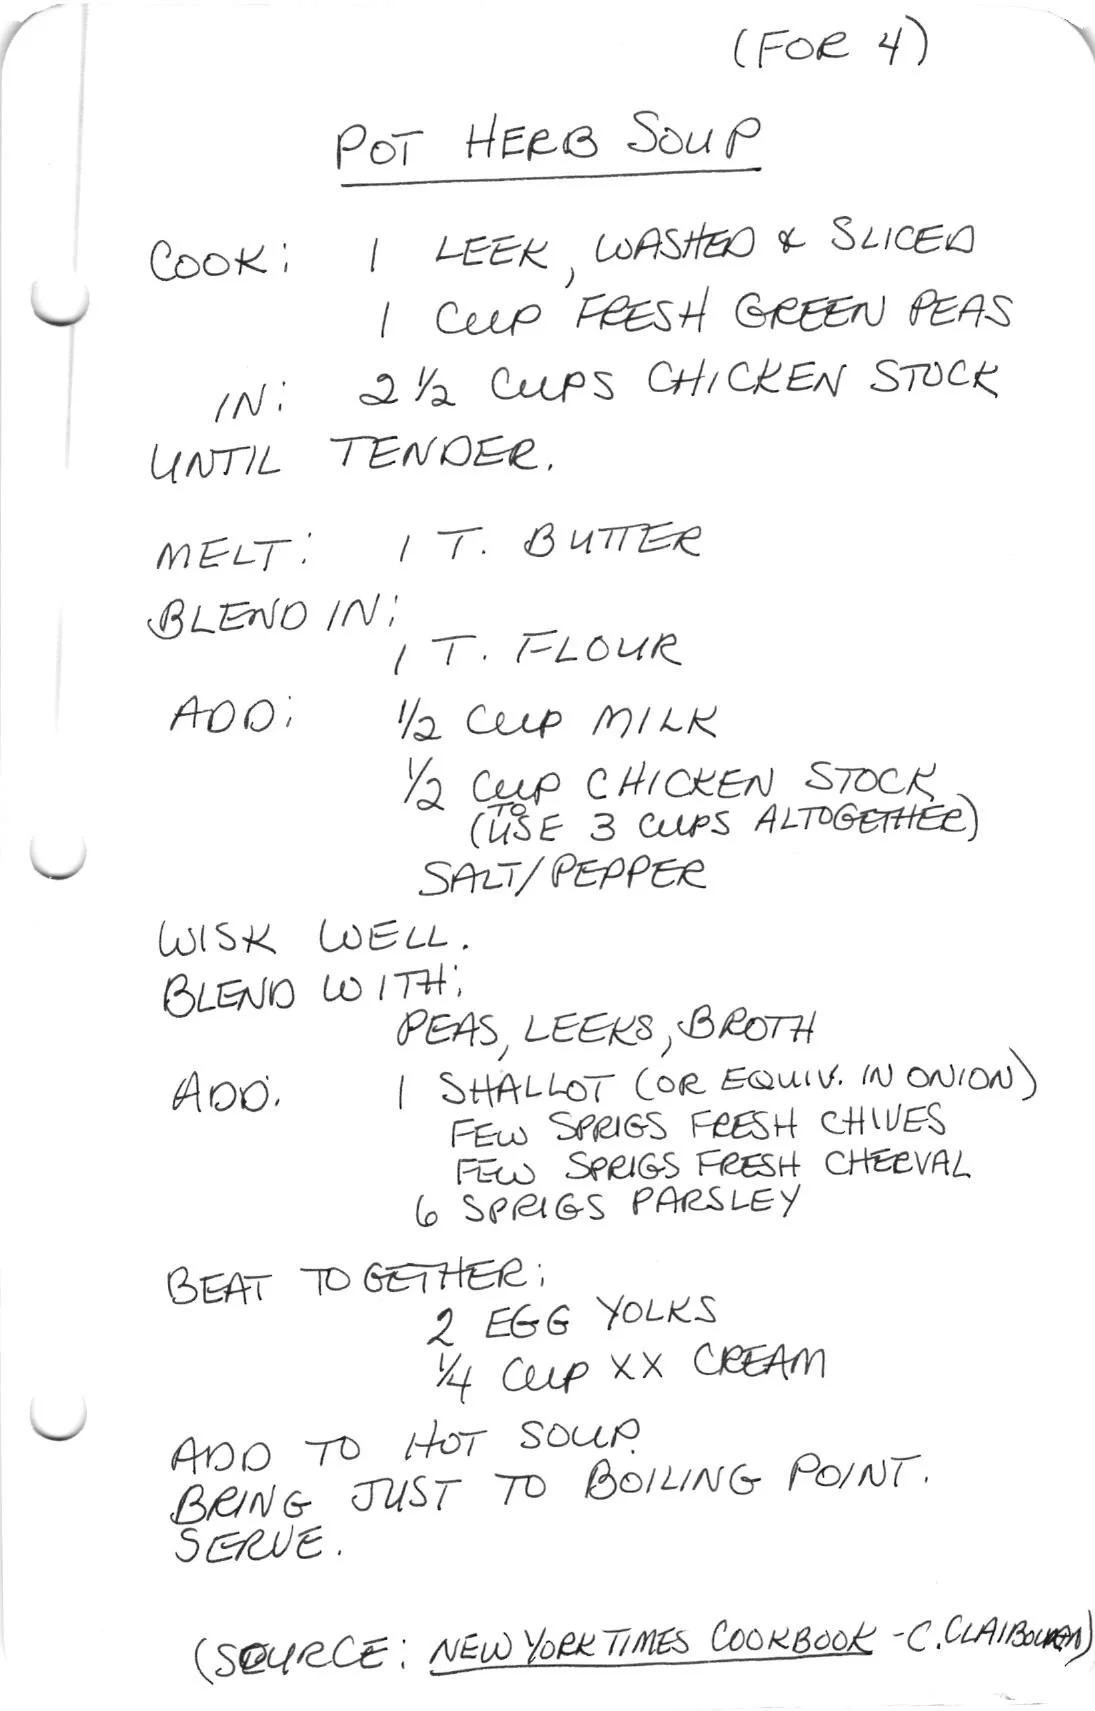 (FOR 4)
POT HERB SOUP
COOK: 1 LEEK, WASHED & SLICED
1 CUP FRESH GREEN PEAS
IN: 2 1/2 CUPS CHICKEN STOCK
UNTIL TENDER.
MELT: 1 T. BUTTER
BLEND IN:
1 T. FLOUR
ADD: 1/2 CUP MILK
1/2 CUP CHICKEN STOCK
(TO USE 3 CUPS ALTOGETHER)
SALT/PEPPER
WISK WELL.
BLEND WITH:
PEAS, LEEKS, BROTH
ADD. 1 SHALLOT (OR EQUIV. IN ONION)
FEW SPRIGS FRESH CHIVES
FEW SPRIGS FRESH CHERVAL
6 SPRIGS PARSLEY
BEAT TOGETHER:
2 EGG YOLKS
1/4 CUP XX CREAM
ADD TO HOT SOUP.
BRING JUST TO BOILING POINT.
SERVE.
(SOURCE: NEW YORK TIMES COOKBOOK - C. CLAIBOURN)